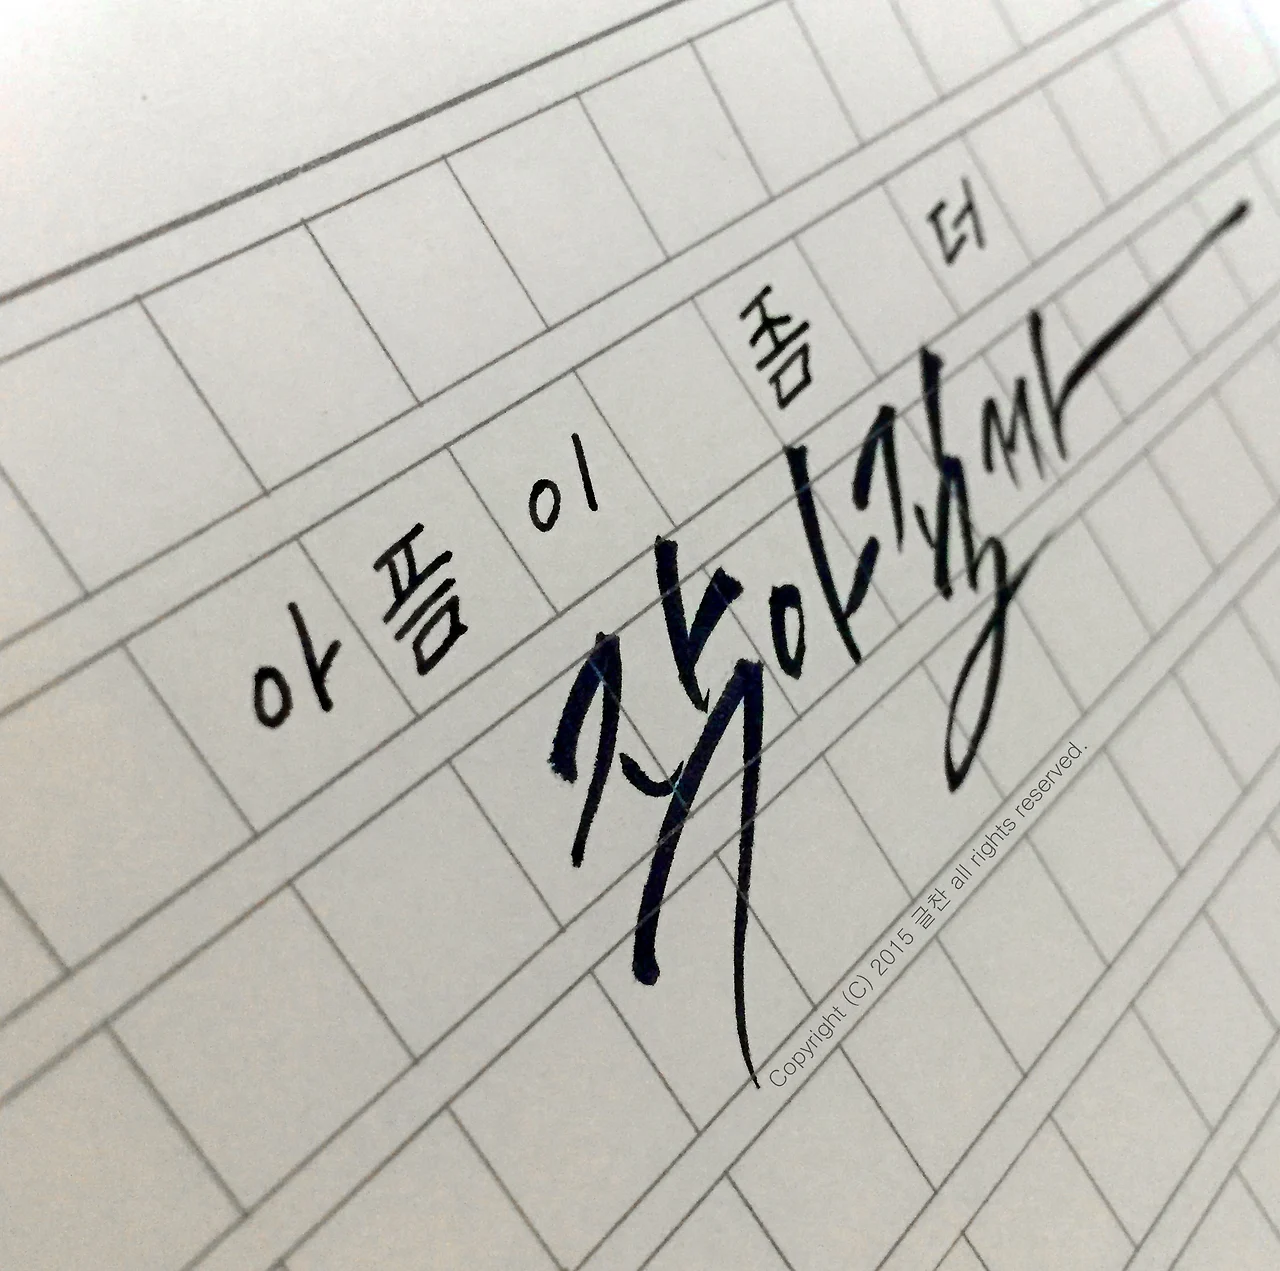 아픔이 좀 더
작아질까
Copyright (C) 2015 글찬 all rights reserved.